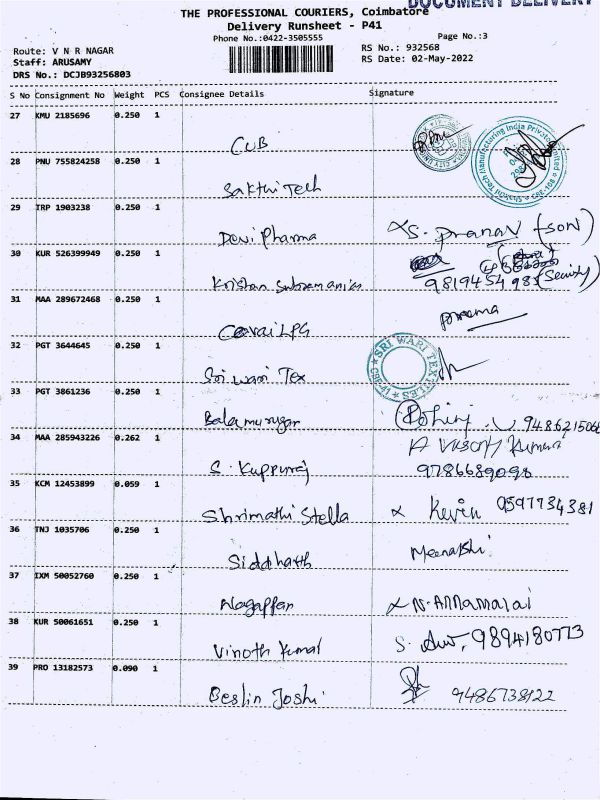 DOCUMENT DELIVERY
THE PROFESSIONAL COURIERS, Coimbatore
Delivery Runsheet - P41
Phone No.:0422-3505555 Page No.:3
Route: V N R NAGAR RS No.: 932568
Staff: ARUSAMY RS Date: 02-May-2022
DRS No.: DCJB93256803
S No Consignment No Weight PCS Consignee Details Signature
27 KMU 2185696 0.250 1
CUB
28 PNU 755824258 0.250 1
Sakthi Tech
29 TRP 1903238 0.250 1
Devi Pharma S. Pranav (SON)
30 KUR 526399949 0.250 1
Krishan Subramanian
31 MAA 289672468 0.250 1
Covai LPG prema
32 PGT 3644645 0.250 1
SRI WARI TEXTILES
CBE-41
Sri wari Tex
33 PGT 3861236 0.250 1
Balamurugan
34 MAA 285943226 0.262 1
S. Kuppuraj 9786689098
35 KCM 12453899 0.059 1
Shrimathi Stella x Kevin 9597734381
36 TNJ 1035706 0.250 1
Siddharth Meenakshi
37 IXM 50052760 0.250 1
Nagappan x N. Annamalai
38 KUR 50061651 0.250 1
Vinoth Kumal S. 9894180773
39 PRO 13182573 0.090 1
Beslin Joshi 9486738122